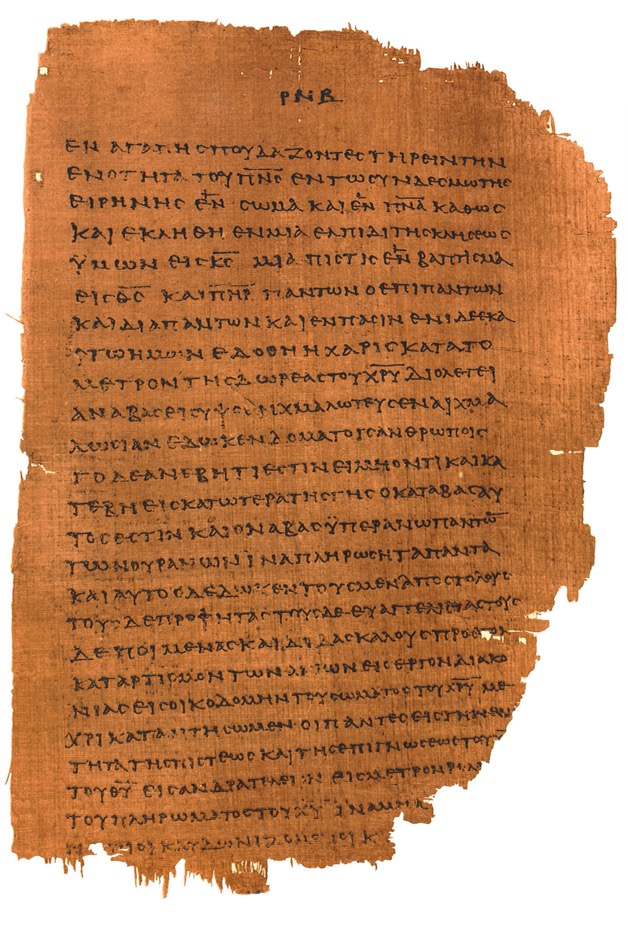 ΡΝΒ
ΕΝ ΑΓΑΠΗ ϹΠΟΥΔΑΖΟΝΤΕϹ ΤΗΡΕΙΝ ΤΗΝ
ΕΝΟΤΗΤΑ ΤΟΥ Π̅Ν̅Ϲ̅ ΕΝ ΤΩ ϹΥΝΔΕϹΜΩ ΤΗϹ
ΕΙΡΗΝΗϹ ΕΝ ϹΩΜΑ ΚΑΙ ΕΝ Π̅Ν̅Α̅ ΚΑΘΩϹ
ΚΑΙ ΕΚΛΗΘΗ ΕΝ ΜΙΑ ΕΛΠΙΔΙ ΤΗϹ ΚΛΗϹΕΩϹ
ΫΜΩΝ ΕΙϹ Κ̅Ϲ̅ ΜΙΑ ΠΙϹΤΙϹ ΕΝ ΒΑΠΤΙϹΜΑ
ΕΙϹ Θ̅Ϲ̅ ΚΑΙ Π̅Η̅Ρ̅ ΠΑΝΤΩΝ Ο ΕΠΙ ΠΑΝΤΩΝ
ΚΑΙ ΔΙΑ ΠΑΝΤΩΝ ΚΑΙ ΕΝ ΠΑϹΙΝ ΕΝΙ ΔΕ ΕΚΑ
ϹΤΩ ΗΜΩΝ ΕΔΟΘΗ Η ΧΑΡΙϹ ΚΑΤΑ ΤΟ
ΜΕΤΡΟΝ ΤΗϹ ΔΩΡΕΑϹ ΤΟΥ Χ̅Ρ̅Υ̅ ΔΙΟ ΛΕΓΕΙ
ΑΝΑΒΑϹ ΕΙϹ ΥΨΟϹ ΗΧΜΑΛΩΤΕΥϹΕΝ ΑΙΧΜΑ
ΛΩϹΙΑΝ ΕΔΩΚΕΝ ΔΟΜΑΤΟΙϹ ΑΝΘΡΩΠΟΙϹ
ΤΟ ΔΕ ΑΝΕΒΗ ΤΙ ΕϹΤΙΝ ΕΙ ΜΗ ΟΝΤΙ ΚΑΙ ΚΑ
ΤΕΒΗ ΕΙϹ ΚΑΤΩΤΕΡΑ ΤΗϹ ΓΗϹ Ο ΚΑΤΑΒΑϹ ΑΥ
ΤΟϹ ΕϹΤΙΝ ΚΑΙ Ο ΝΑΒΑϹ ΫΠΕΡΑΝΩ ΠΑΝΤΩ̅
ΤΩΝ ΟΥΡΑΝΩΝ ΪΝΑ ΠΛΗΡΩϹΗ ΤΑ ΠΑΝΤΑ
ΚΑΙ ΑΥΤΟϹ ΔΕΔΩΚΕΝ ΤΟΥϹ ΜΕΝ ΑΠΟϹΤΟΛΟΥϹ
ΤΟΥϹ ΔΕ ΠΡΟΦΗΤΑϹ ΤΟΥϹ ΔΕ ΕΥΑΓΓΕΛΙϹΤΑϹ ΤΟΥϹ
ΔΕ ΠΟΙΜΕΝΑϹ ΚΑΙ ΔΙΔΑϹΚΑΛΟΥϹ ΠΡΟϹ ΤΟΝ
ΚΑΤΑΡΤΙϹΜΟΝ ΤΩΝ ΑΓΙΩΝ ΕΙϹ ΕΡΓΟΝ ΔΙΑΚΟ
ΝΙΑϹ ΕΙϹ ΟΙΚΟΔΟΜΗΝ ΤΟΥ ϹΩΜΑΤΟϹ ΤΟΥ Χ̅Ρ̅Υ̅ ΜΕ
ΧΡΙ ΚΑΤΑΝΤΗϹΩΜΕΝ ΟΙ ΠΑΝΤΕϹ ΕΙϹ ΤΗΝ ΕΝΟ
ΤΗΤΑ ΤΗϹ ΠΙϹΤΕΩϹ ΚΑΙ ΤΗϹ ΕΠΙΓΝΩϹΕΩϹ ΤΟΥ
ΤΟΥ Θ̅Υ̅ ΕΙϹ ΑΝΔΡΑ ΤΕΛΕΙΟΝ ΕΙϹ ΜΕΤΡΟΝ
ΤΟΥ ΠΛΗΡΩΜΑΤΟϹ ΤΟΥ Χ̅Υ̅ ΪΝΑ
ΚΛΥΔΩΝΙΖΟΜΕΝΟΙ Κ